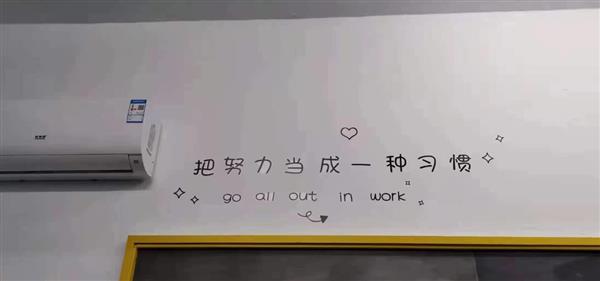 把努力当成一种习惯
go all out in work